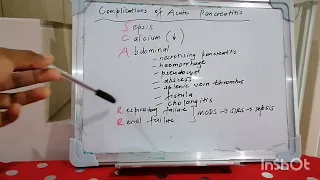 Complications of Acute Pancreatitis
Sepsis
Calcium (↓)
Abdominal
- necrotising pancreatitis
- haemorrhage
- pseudocyst
- abscess
- splenic vein thrombus
- fistula
- cholangitis
Respiratory failure
Renal failure ] MODS → SIRS → sepsis
Made with
InShot